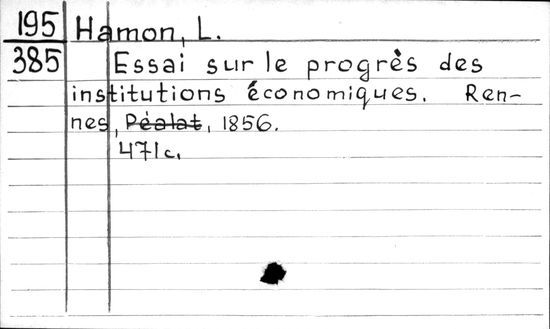 195 Hamon, L.
385 Essai sur le progrès des
institutions économiques. Ren-
nes, Péalat, 1856.
471 c.